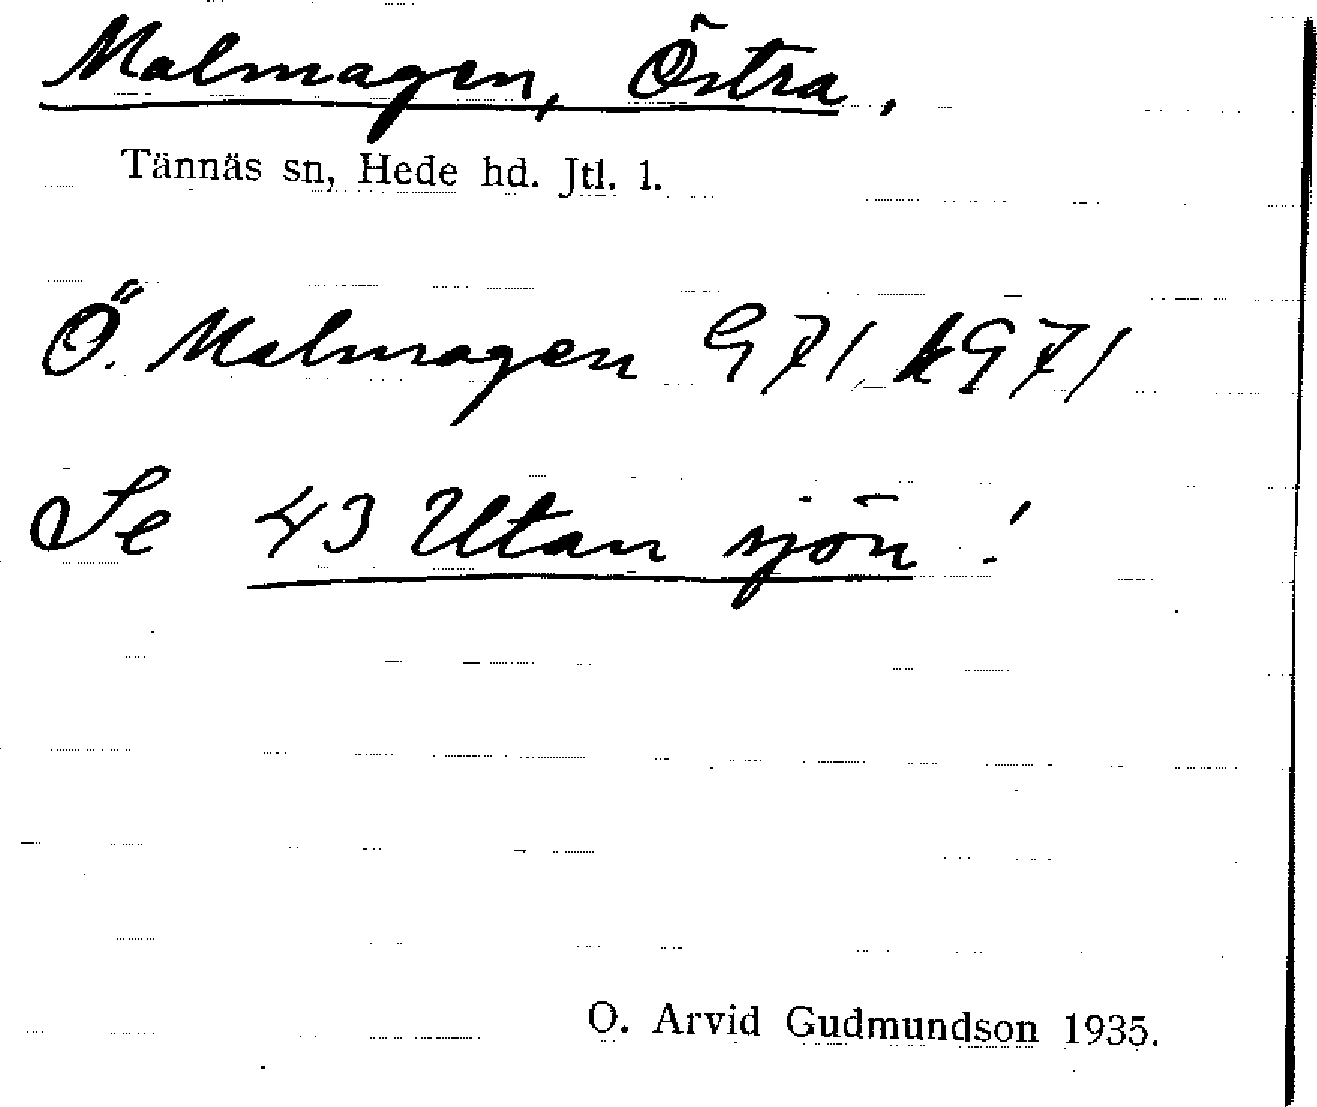 Malmagen, Östra.
Tännäs sn, Hede hd. Jtl. l.
Ö. Malmagen 971, k971
Se 43 Utan sjön!
O. Arvid Gudmundson 1935.